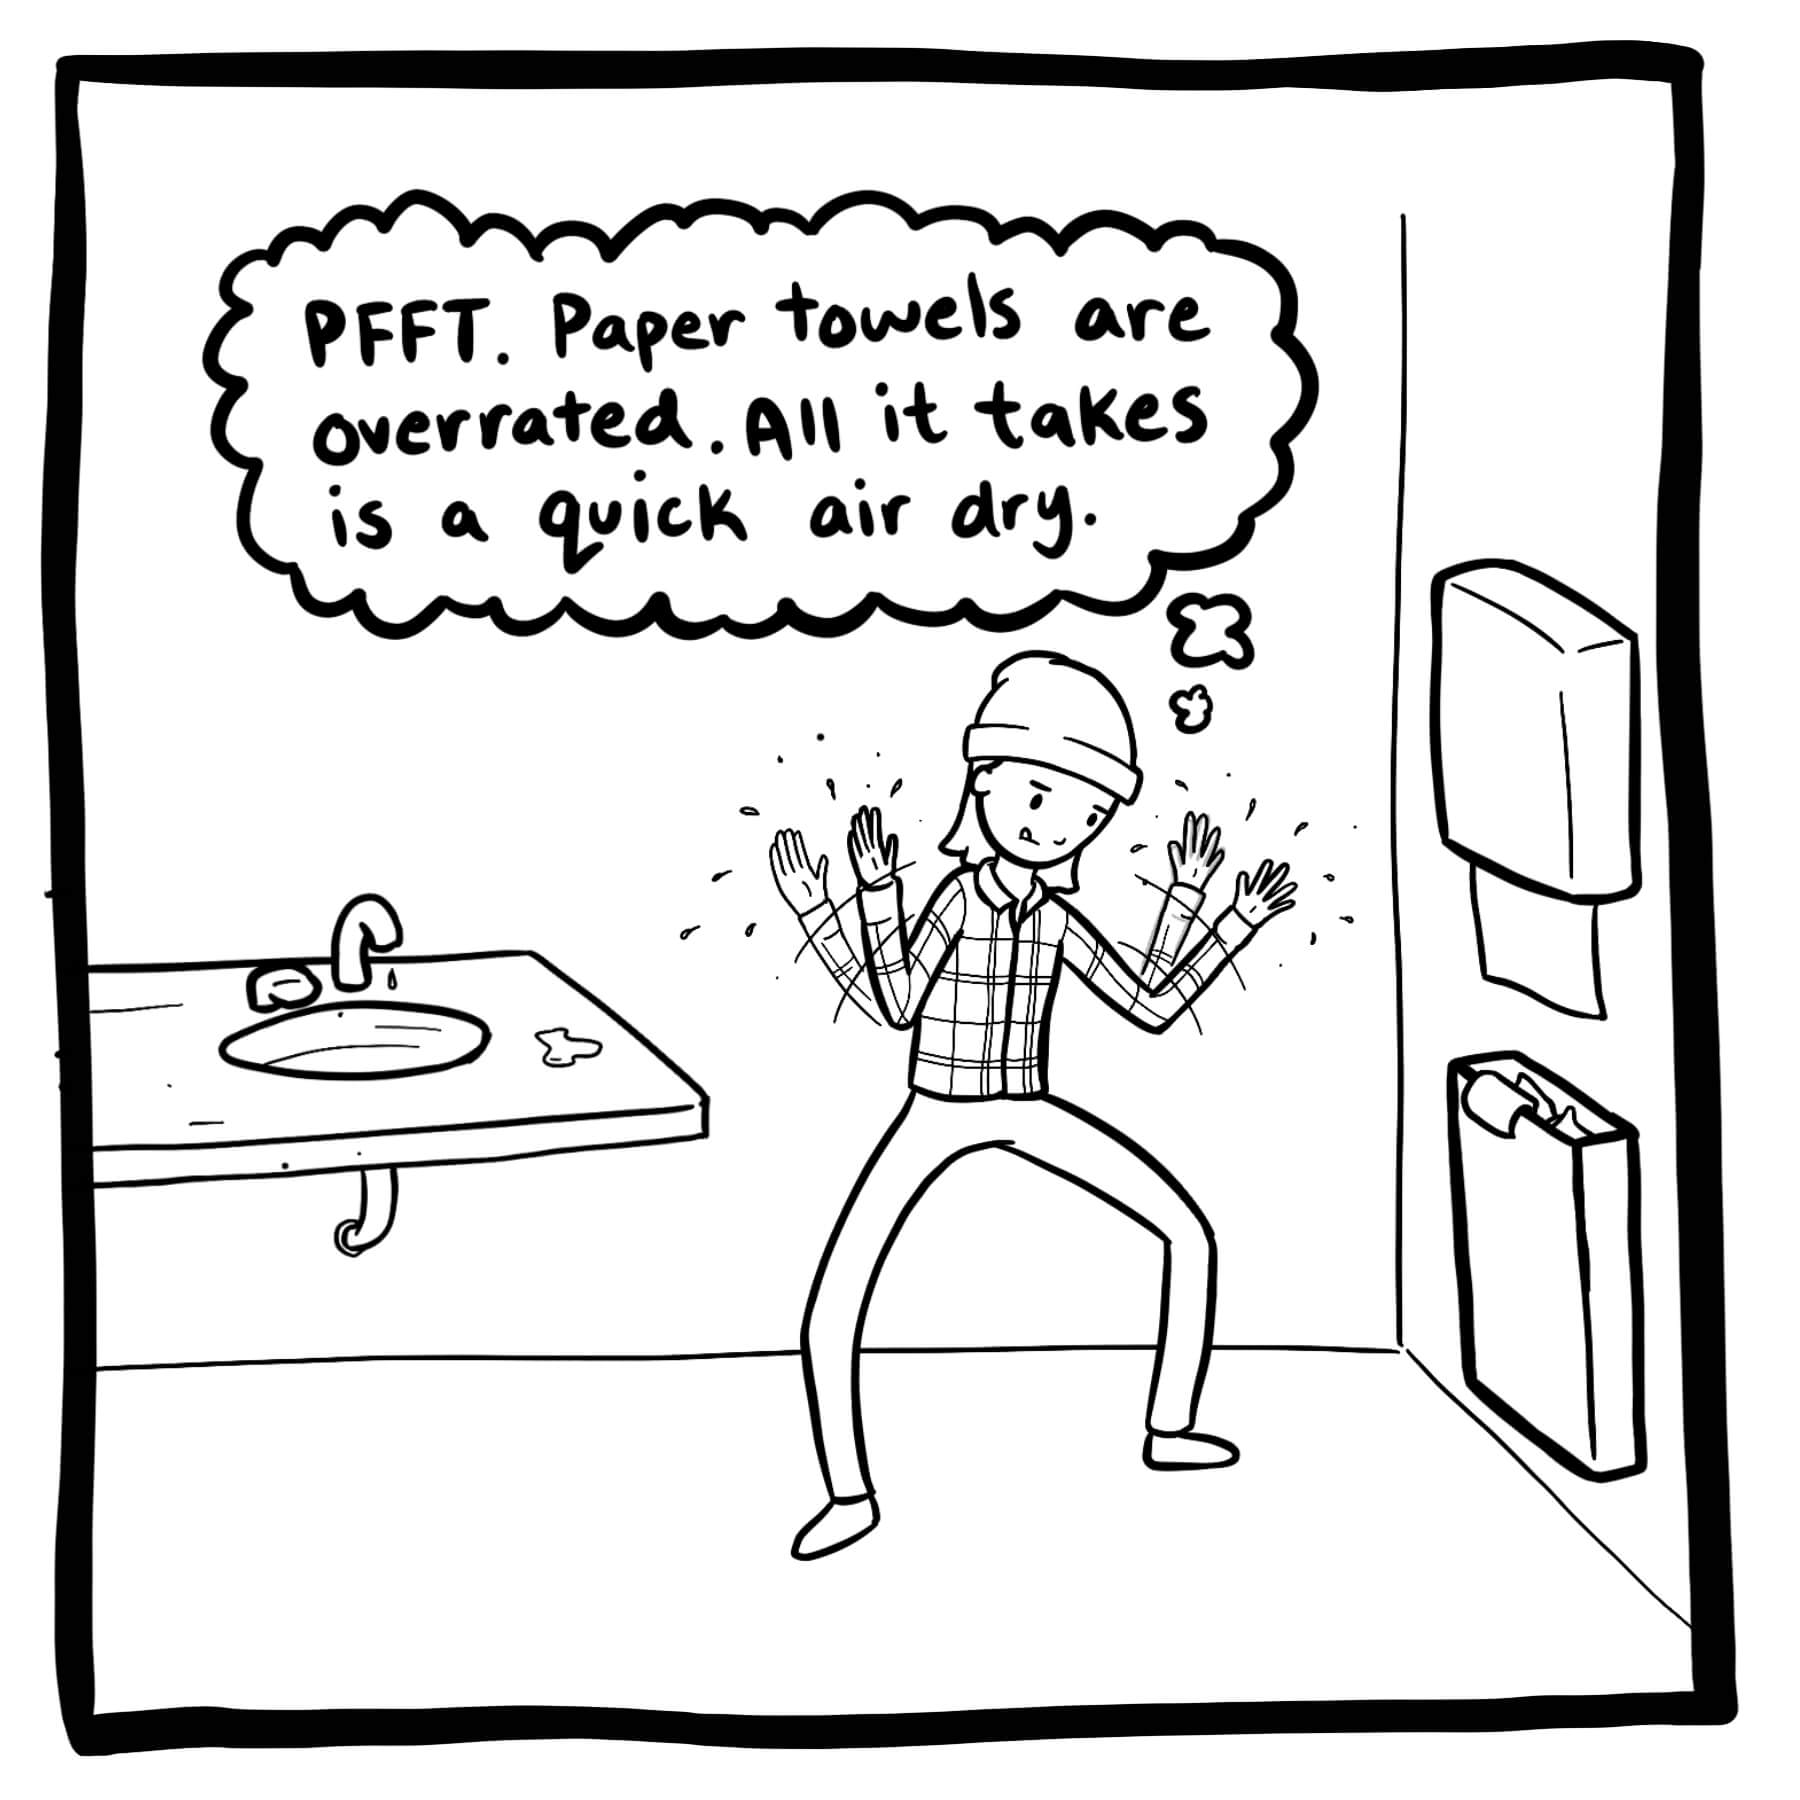 PFFT. Paper towels are
overrated. All it takes
is a quick air dry.